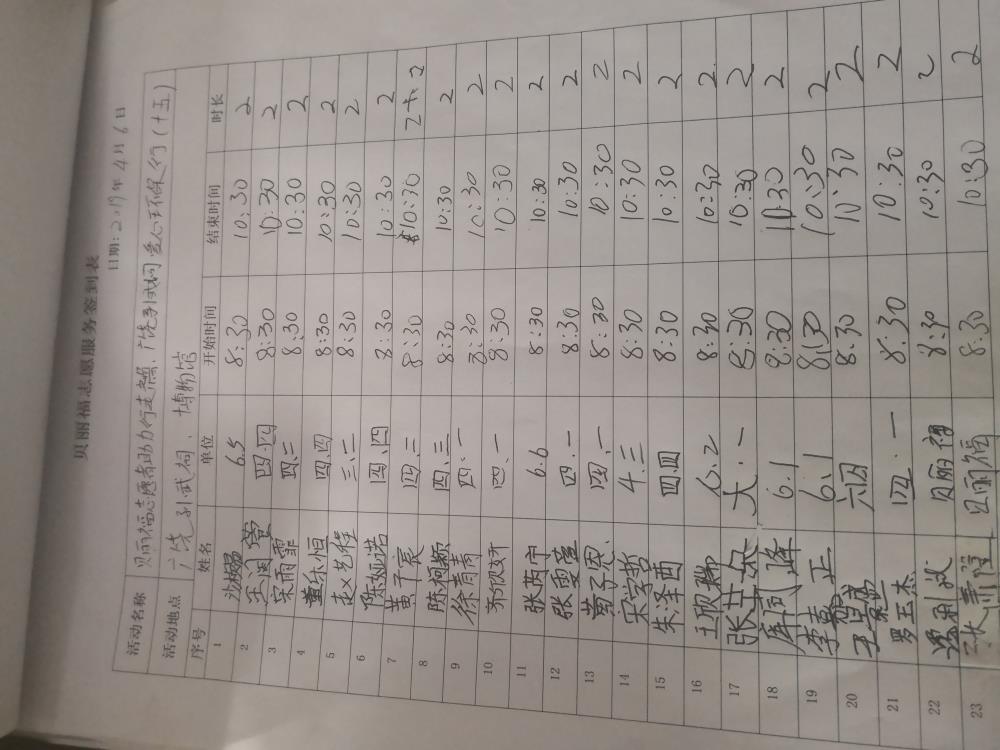 贝丽福志愿服务签到表
日期:2019年4月6日
活动名称 贝丽福志愿者助力行走 爱心环保行(十五)
活动地点 武祠、博物馆
序号 姓名 单位 开始时间 结束时间 时长
1 6.5 8:30 10:30 2
2 王 四.四 8:30 10:30 2
3 宋雨霏 四.二 8:30 10:30 2
4 董乐恒 四.四 8:30 10:30 2
5 赵艺程 三.二 8:30 10:30 2
6 陈娅诺 四.四 8:30 10:30 2
7 黄子宸 四.二 8:30 10:30 2
8 陈柯颖 四.三 8:30 10:30 2
9 徐青青 四.一 8:30 10:30 2
10 乔欣妤 四.一 8:30 10:30 2
11 张芮宁 6.6 8:30 10:30 2
12 张雯萱 四.一 8:30 10:30 2
13 子恩 四.一 8:30 10:30 2
14 宋学哲 4.三 8:30 10:30 2
15 朱泽西 四四 8:30 10:30 2
16 王欣瑞 6.2 8:30 10:30 2
17 张 六.一 8:30 10:30 2
18 6.1 8:30 10:30 2
19 李嘉正 6.1 8:30 10:30 2
20 王 六四 8:30 10:30 2
21 罗玉杰 四.一 8:30 10:30 2
22 贝丽福 8:30 10:30 2
23 张 贝丽福 8:30 10:30 2